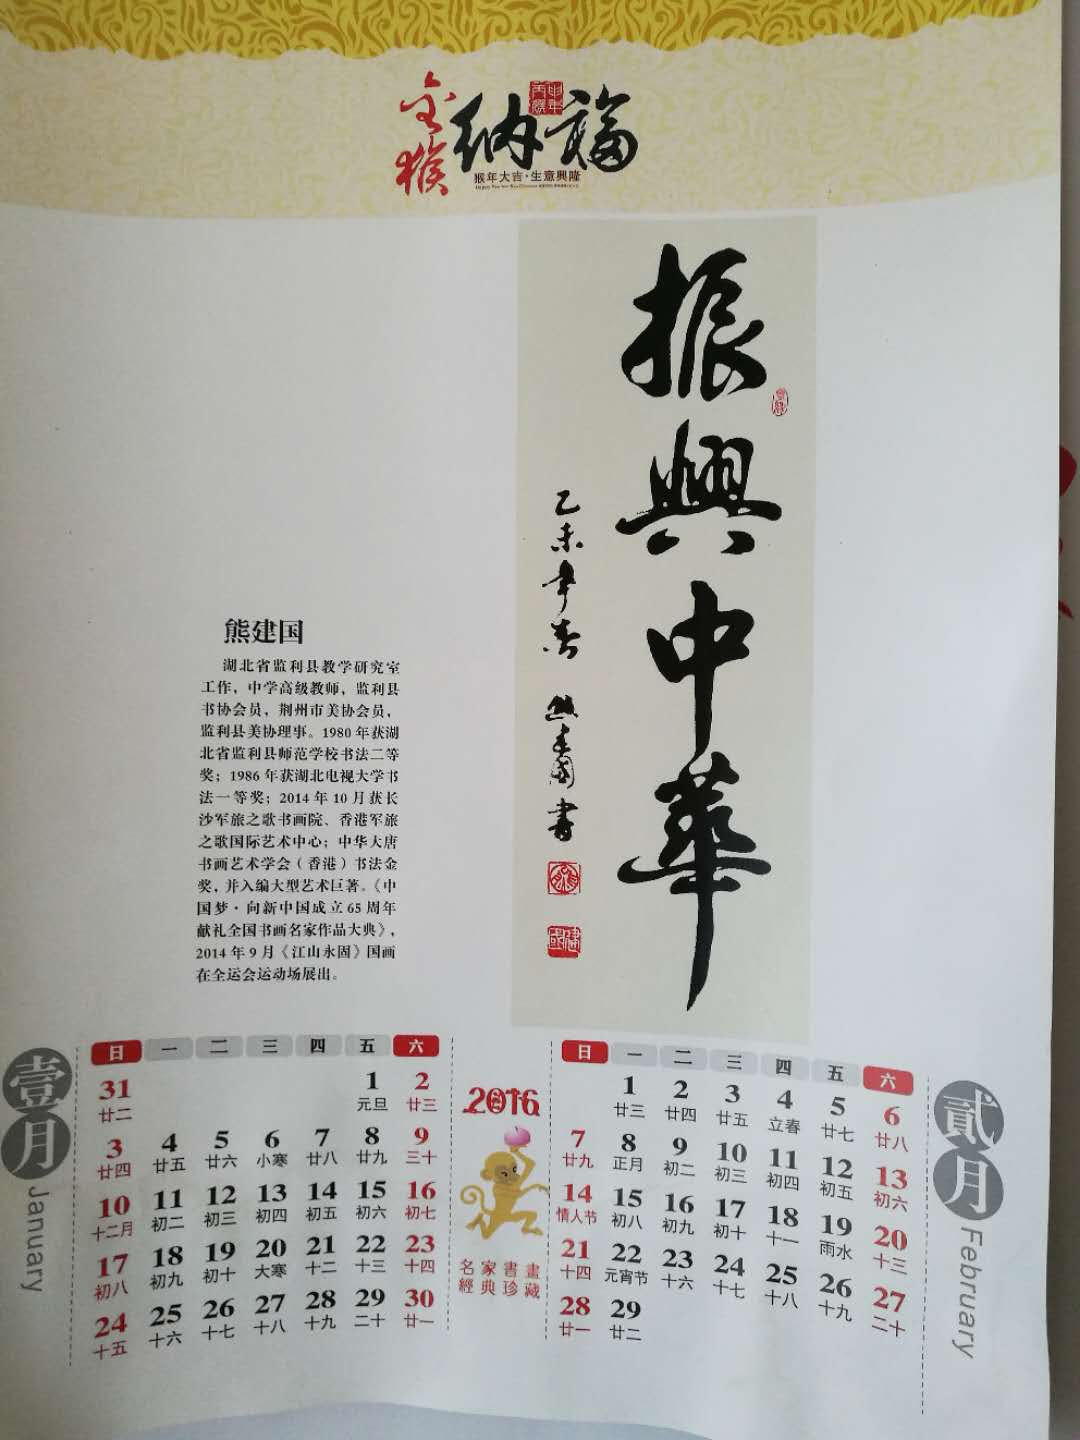 金猴
纳福
丙申
猴年
猴年大吉·生意興隆
振興中華
乙未年春 熊建國書
熊建国
湖北省监利县教学研究室
工作，中学高级教师，监利县
书协会员，荆州市美协会员，
监利县美协理事。1980 年获湖
北省监利县师范学校书法二等
奖；1986 年获湖北电视大学书
法一等奖；2014 年 10 月获长
沙军旅之歌书画院、香港军旅
之歌国际艺术中心；中华大唐
书画艺术学会（香港）书法金
奖，并入编大型艺术巨著。《中
国梦·向新中国成立 65 周年
献礼全国书画名家作品大典》，
2014 年 9 月《江山永固》国画
在全运会运动场展出。
壹月
January
日 一 二 三 四 五 六
31 1 2
廿二 元旦 廿三
3 4 5 6 7 8 9
廿四 廿五 廿六 小寒 廿八 廿九 三十
10 11 12 13 14 15 16
十二月 初二 初三 初四 初五 初六 初七
17 18 19 20 21 22 23
初八 初九 初十 大寒 十二 十三 十四
24 25 26 27 28 29 30
十五 十六 十七 十八 十九 二十 廿一
2016
名家書畫
經典珍藏
日 一 二 三 四 五 六
1 2 3 4 5 6
廿三 廿四 廿五 立春 廿七 廿八
7 8 9 10 11 12 13
廿九 正月 初二 初三 初四 初五 初六
14 15 16 17 18 19 20
情人节 初八 初九 初十 十一 雨水 十三
21 22 23 24 25 26 27
十四 元宵节 十六 十七 十八 十九 二十
28 29
廿一 廿二
貳月
February